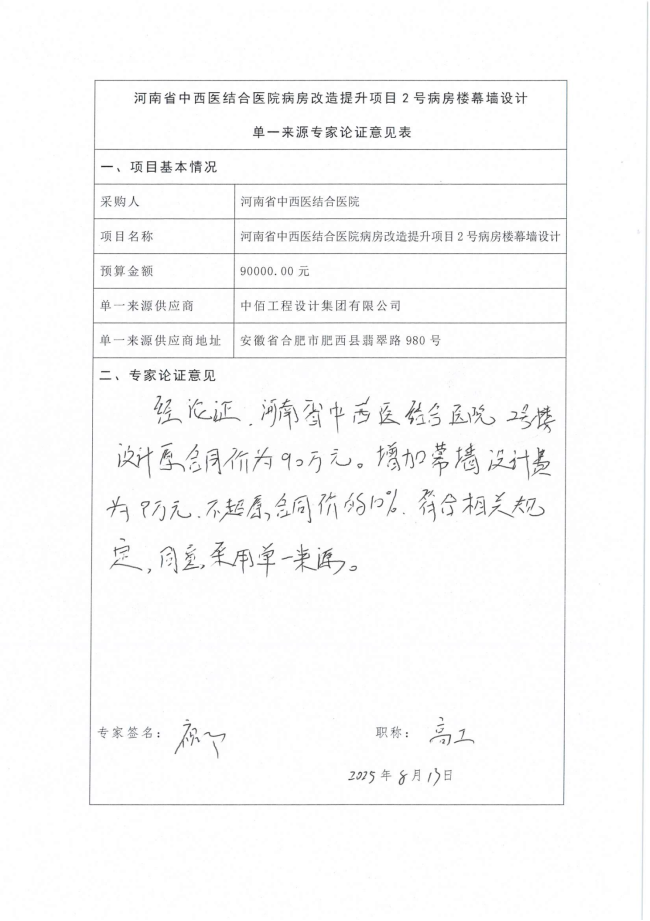 河南省中西医结合医院病房改造提升项目2号病房楼幕墙设计
单一来源专家论证意见表
一、项目基本情况
采购人 河南省中西医结合医院
项目名称 河南省中西医结合医院病房改造提升项目2号病房楼幕墙设计
预算金额 90000.00 元
单一来源供应商 中佰工程设计集团有限公司
单一来源供应商地址 安徽省合肥市肥西县翡翠路 980 号
二、专家论证意见
经论证，河南省中西医结合医院2号楼
设计原合同价为90万元。增加幕墙设计费
为9万元，不超原合同价的10%，符合相关规
定，同意采用单一来源。
专家签名： 职称：高工
2025年8月13日